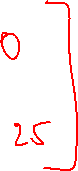 0
25
]